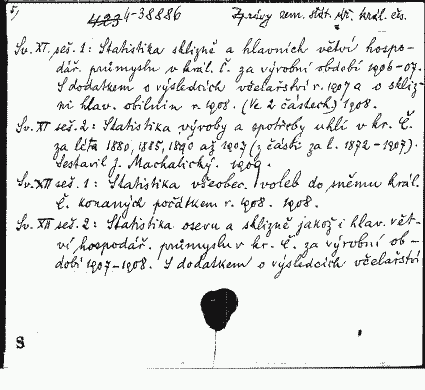 5) 4-38886 Zprávy zem. stat. úř. král. čes.
Sv. XI. seš. 1: Statistika sklizně a hlavních větví hospo-
dář. průmyslu v král. č. za výrobní období 1906-07.
S dodatkem o výsledcích včelařství r. 1907 a o skliz-
ni hlav. obilnin r. 1908. (Ve 2 částech) 1908.
Sv. XI seš. 2: Statistika výroby a spotřeby uhlí v kr. Č.
za léta 1880, 1885, 1890 až 1907 (z části za l. 1872-1907).
Sestavil J. Machalický. 1909.
Sv. XII seš. 1: Statistika všeobec. voleb do sněmu král.
Č. konaných počátkem r. 1908. 1908.
Sv. XII seš. 2: Statistika osevu a sklizně jakož i hlav. vět-
ví hospodář. průmyslu v kr. Č. za výrobní ob-
dobí 1907-1908. S dodatkem o výsledcích včelařství
S